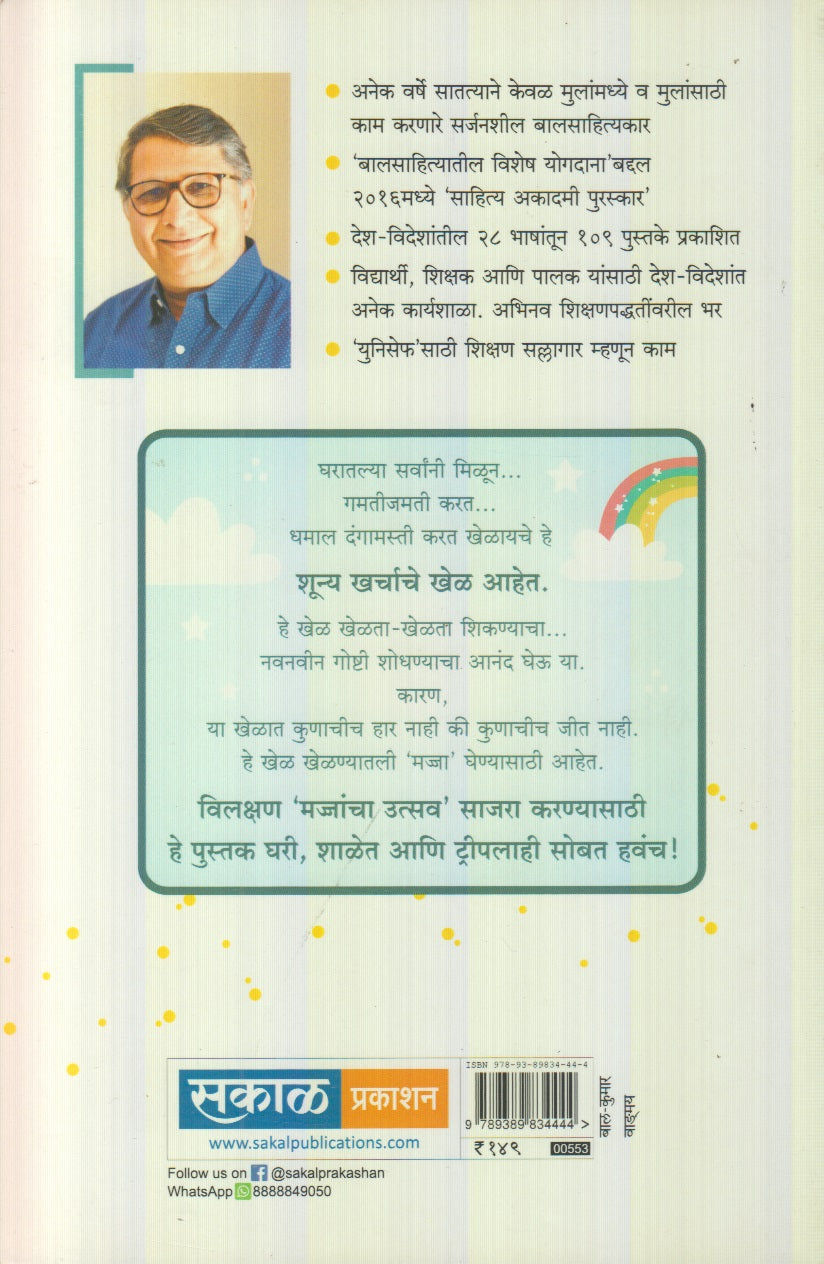 अनेक वर्षे सातत्याने केवळ मुलांमध्ये व मुलांसाठी
काम करणारे सर्जनशील बालसाहित्यकार
‘बालसाहित्यातील विशेष योगदाना’बद्दल
२०१६मध्ये ‘साहित्य अकादमी पुरस्कार’
देश-विदेशांतील २८ भाषांतून १०९ पुस्तके प्रकाशित
विद्यार्थी, शिक्षक आणि पालक यांसाठी देश-विदेशांत
अनेक कार्यशाळा. अभिनव शिक्षणपद्धतींवरील भर
‘युनिसेफ’साठी शिक्षण सल्लागार म्हणून काम
घरातल्या सर्वांनी मिळून...
गमतीजमती करत...
धमाल दंगामस्ती करत खेळायचे हे
शून्य खर्चाचे खेळ आहेत.
हे खेळ खेळता-खेळता शिकण्याचा...
नवनवीन गोष्टी शोधण्याचा आनंद घेऊ या.
कारण,
या खेळात कुणाचीच हार नाही की कुणाचीच जीत नाही.
हे खेळ खेळण्यातली ‘मज्जा’ घेण्यासाठी आहेत.
विलक्षण ‘मज्जांचा उत्सव’ साजरा करण्यासाठी
हे पुस्तक घरी, शाळेत आणि ट्रीपलाही सोबत हवंच!
सकाळ प्रकाशन
www.sakalpublications.com
ISBN 978-93-89834-44-4
9 789389 834444 >
₹ १४९ 00553
बाल-कुमार
वाङ्मय
Follow us on @sakalprakashan
WhatsApp 8888849050